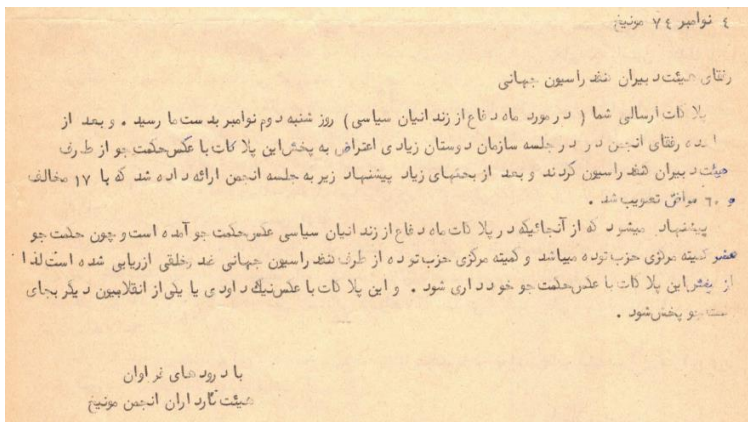 ٤ نوامبر ٧٤ مونیخ
رفقای هیئت دبیران کنفدراسیون جهانی
پلاکات ارسالی شما ( در مورد ماه دفاع از زندانیان سیاسی ) روز شنبه دوم نوامبر بدست ما رسید . و بعد از
رفقای انجمن در در جلسه سازمان دوستان زیادی اعتراض به پخش این پلاکات با عکس حکمت جو از طرف
هیئت دبیران کنفدراسیون کردند و بعد از بحثهای زیاد پیشنهاد زیر به جلسه انجمن ارائه داده شد که با ١٧ مخالف
و ٦٠ موافق تصویب شد .
پیشنهاد میشود که از آنجائیکه در پلاکات ماه دفاع از زندانیان سیاسی عکس حکمت جو آمده است و چون حکمت جو
عضو کمیته مرکزی حزب توده میباشد و کمیته مرکزی حزب توده از طرف کنفدراسیون جهانی ضد خلقی ارزیابی شده است لذا
از پخش این پلاکات با عکس حکمت جو خودداری شود . و این پلاکات با عکس نیک داودی یا یکی از انقلابیون دیگر بجای
حکمت جو پخش شود .
با درودهای فراوان
هیئت کارداران انجمن مونیخ